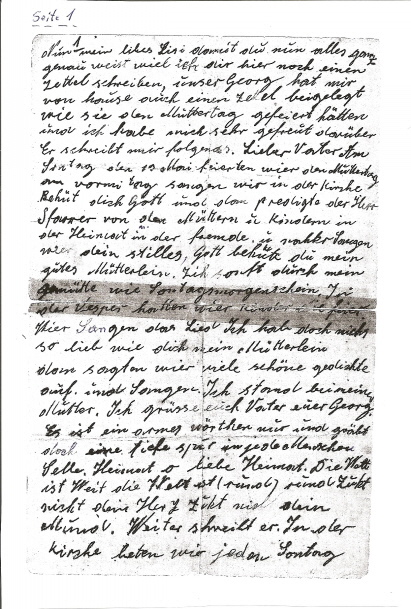 Seite 1
Nun mein libes Lisi damit du nun alles ganz
genau weist wiel ich dir hier noch einen
Zettel schreiben, unser Georg hat mir
von hause auch einen Zetel beigelegt
wie sie den Müttertag gefeiert hätten
und ich habe mich sehr gefreut darüber
Er schreibt mir folgendes. Lieber Vater Am
Sontag den 13 Mai feierten wier den Müttertag
am vormitag sangen wir in der kirche
Behüt dich Gott und dan predigte der Herr
Pfarrer von den Müttern u Kindern in
der Heimat in der fremde. u nachher Sangen
wier dein stilles, Gott behüte du mein
gutes Mütterlein. Zih sanft durch mein
gemüte wie Sontagsmorgenschein. In
der Vesper hatten wier kinder
Wier Sangen das Lied Ich hab doch nichts
so lieb wie dich mein Mütterlein
dan sagten wier viele schöne gedichte
auf. und Sangen. Ich stand bei meiner
Mutter. Ich grüsse euch Vater euer Georg
Es ist ein armes wörtken nur und gräbt
doch eine tiefe spur in jede Menschen
Selle, Heimat o liebe Heimat. Die Welt
ist Weit die Welt ist (rund) rund Zukt
nicht dein Herz Zukt nur dein
Mund. Weiter schreibt er. In der
kirche beten wir jeden Sontag